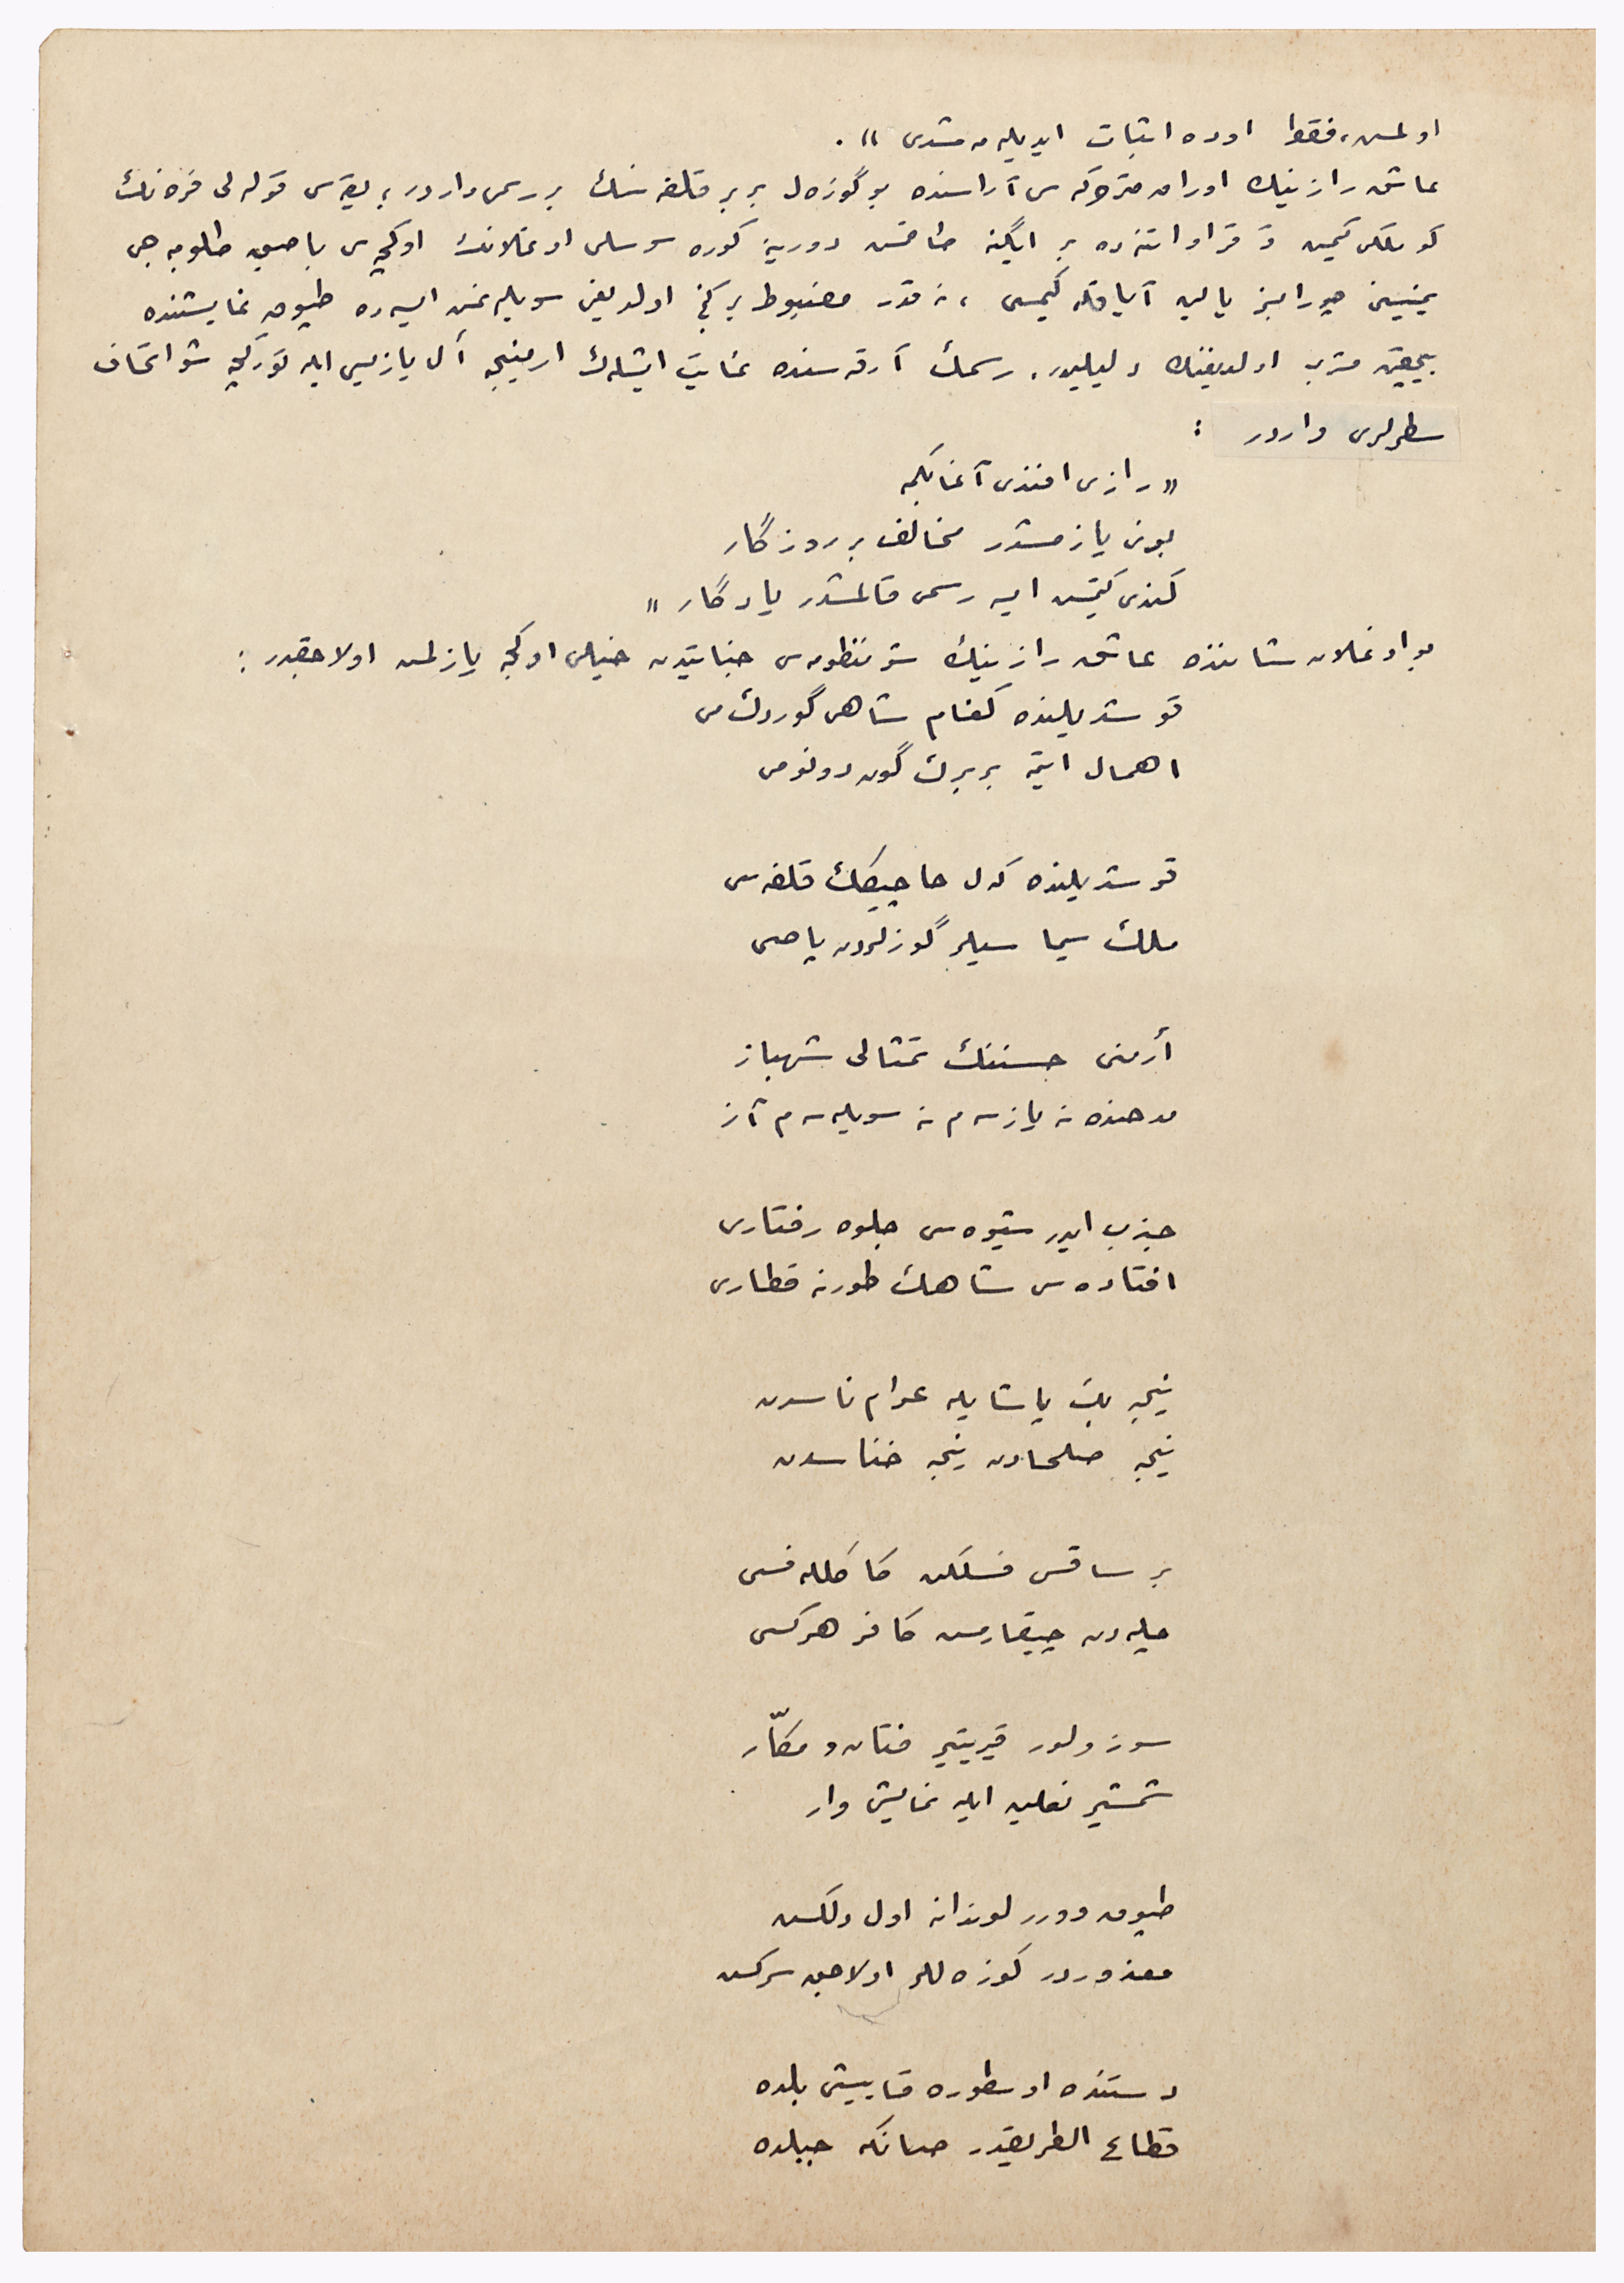 اولمس، فقط اوده اثبات ایدیله مشدی » .
عاشق رازینك اوراق متروکه سی آراسنده بو گوزه ل بر بر قلفه سنك بر رسمی واردر ؛ یقه سی قوله لی فره نك
گوملکی کیمین و قراواتنه ده بر ایگنه طاقمس دورینه کوره سوسلی اوغلانك اوکچه سی باصیق طلومبه جی
یمنیسنی چورابسز یالین آیاقله کیمسی ، نه قدر مضبوط بر کنج اولدیغنی سویله نمس ایسه ده طپوق نمایشنده
بیچقین مشرب اولدیغنك دلیلیدر. رسمك آرقه سنده غایت ایشلك ارمنیجه أل یازیسی ایله تورکجه شو اتحاف
سطرلری واردر :
« رازی افندی آغابکمه
بونی یازمشدر مخالف بر روزگار
کندی کیتمس ایسه رسمی قالمشدر یادگار »
بو اوغلان شاننده عاشق رازینك شو منظومه سی جنایتدن خیلی اوکجه یازلمس اولاجقدر :
قوشدیلنده گلفام شاهی گوردك می
اهمال ایتمه بربرك گون دونومی
قوشدیلنده کل حاجیکك قلفه سی
ملك سیما سیلر گوزلردن پاصی
أرمنی حسننك تمثالی شهباز
مدحنده نه یازسه م نه سویله سه م آز
جذب ایدر شیوه سی جلوه رفتاری
افتاده سی شاهك طورنه قطاری
نیجه بك پاشایله عوام ناسدن
نیجه صلحادن نیجه خناسدن
بر ساقس فسلکن کاکلله فسی
چله دن چیقارمس کافر هرکسی
سوزولور قیریتیر فتان و مکّار
شمشیر نعلین ایله نمایش وار
طپوق دوور لوندانه اول دلکس
معذوردر گوزه للر اولاجق سرکس
دستنده اوسطوره قاییش بلده
قطاع الطریقدر صانکه جبلده